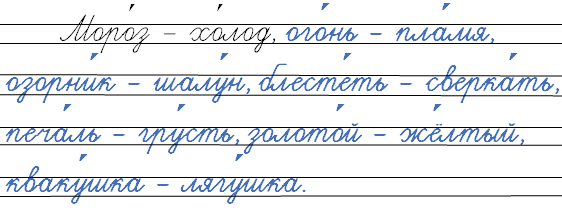 Моро́з – хо́лод, ого́нь – пла́мя,
озорни́к – шалу́н, блесте́ть – сверка́ть,
печа́ль – гру́сть, золото́й – жё́лтый,
кваку́шка – лягу́шка.